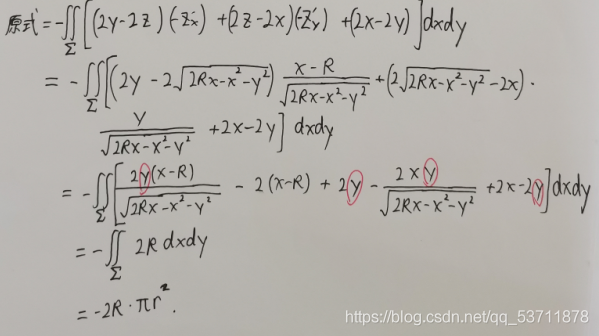 原式=-∬_Σ[(2y-2z)(-Zx)+(2z-2x)(-Z'y)+(2x-2y)]dxdy
=-∬_Σ[(2y-2√(2Rx-x²-y²)) (x-R)/√(2Rx-x²-y²)+(2√(2Rx-x²-y²)-2x)·
y/√(2Rx-x²-y²)+2x-2y]dxdy
=-∬_Σ[2y(x-R)/√(2Rx-x²-y²)-2(x-R)+2y-2xy/√(2Rx-x²-y²)+2x-2y]dxdy
=-∬_Σ 2Rdxdy
=-2R·πr².
https://blog.csdn.net/qq_53711878